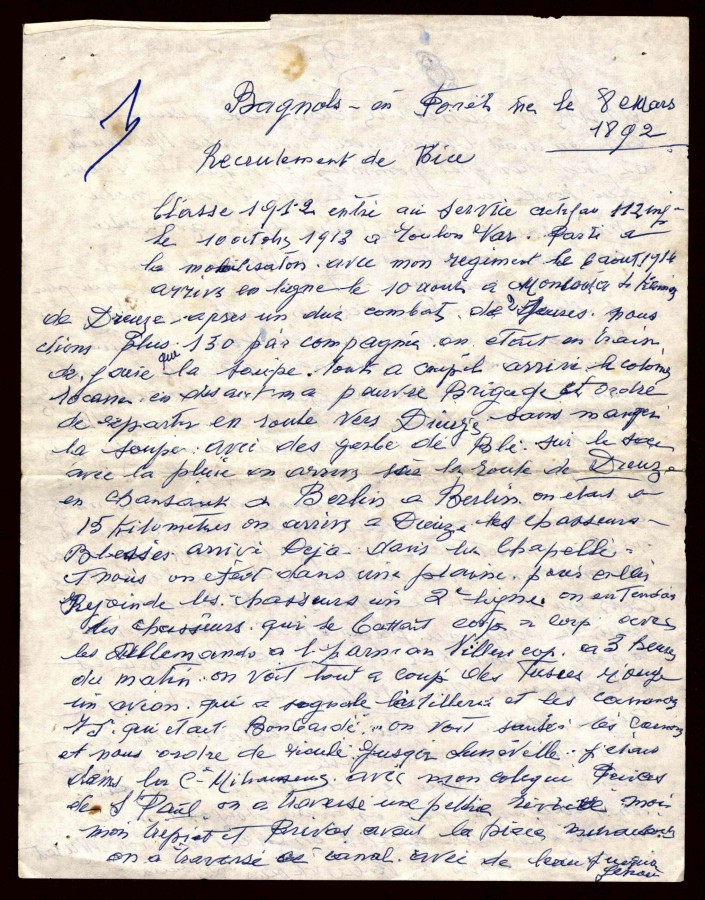 Bagnols - en Forêt né le 8 Mars
1892
Recrutement de Nice
Classe 1912 entré au service actif au 112 inf
le 10 octobre 1913 a Toulon Var. Parti a
la mobilisation. avec mon regiment le 6 aout 1914
arrivé en ligne le 10 aout a
de Dieuze. apres un dur combat. de 2 Heures. nous
etions plus 130 par compagnie on etait en train
de faire la soupe. tout a coup il arrive le colonel
en disant ma pauvre Brigade et ordre
de repartir en route vers Dieuze sans manger
la soupe. avec des gerbe de Blé. sur le sac
avec la pluie on arrive sur la route de Dieuze
en chantant a Berlin a Berlin. on etait a
15 Kilometres on arrive a Dieuze. les chasseurs
Blessés. arrivé Deja dans la chapelle.
nous on etait dans une plaine. pour aller
Rejoinde les. chasseurs en 2e ligne. on entendai
les chasseurs. qui se battait corp a corp avec
les Allemands a l. a 3 Heures
du matin. on voit tout a coup des Fusees rouge
un avion. qui a signale l'artillerie et les canons
75. qui etait Bombardé. on voit sauter les canons
et nous ordre de reculé jusqua Luneville. j'etais
dans la Cie avec mon colegue
de S Paul on a traversé une petite riviere moi
mon trepied et Privas avait la piece
on a traversé ce canal. avec de l'eau